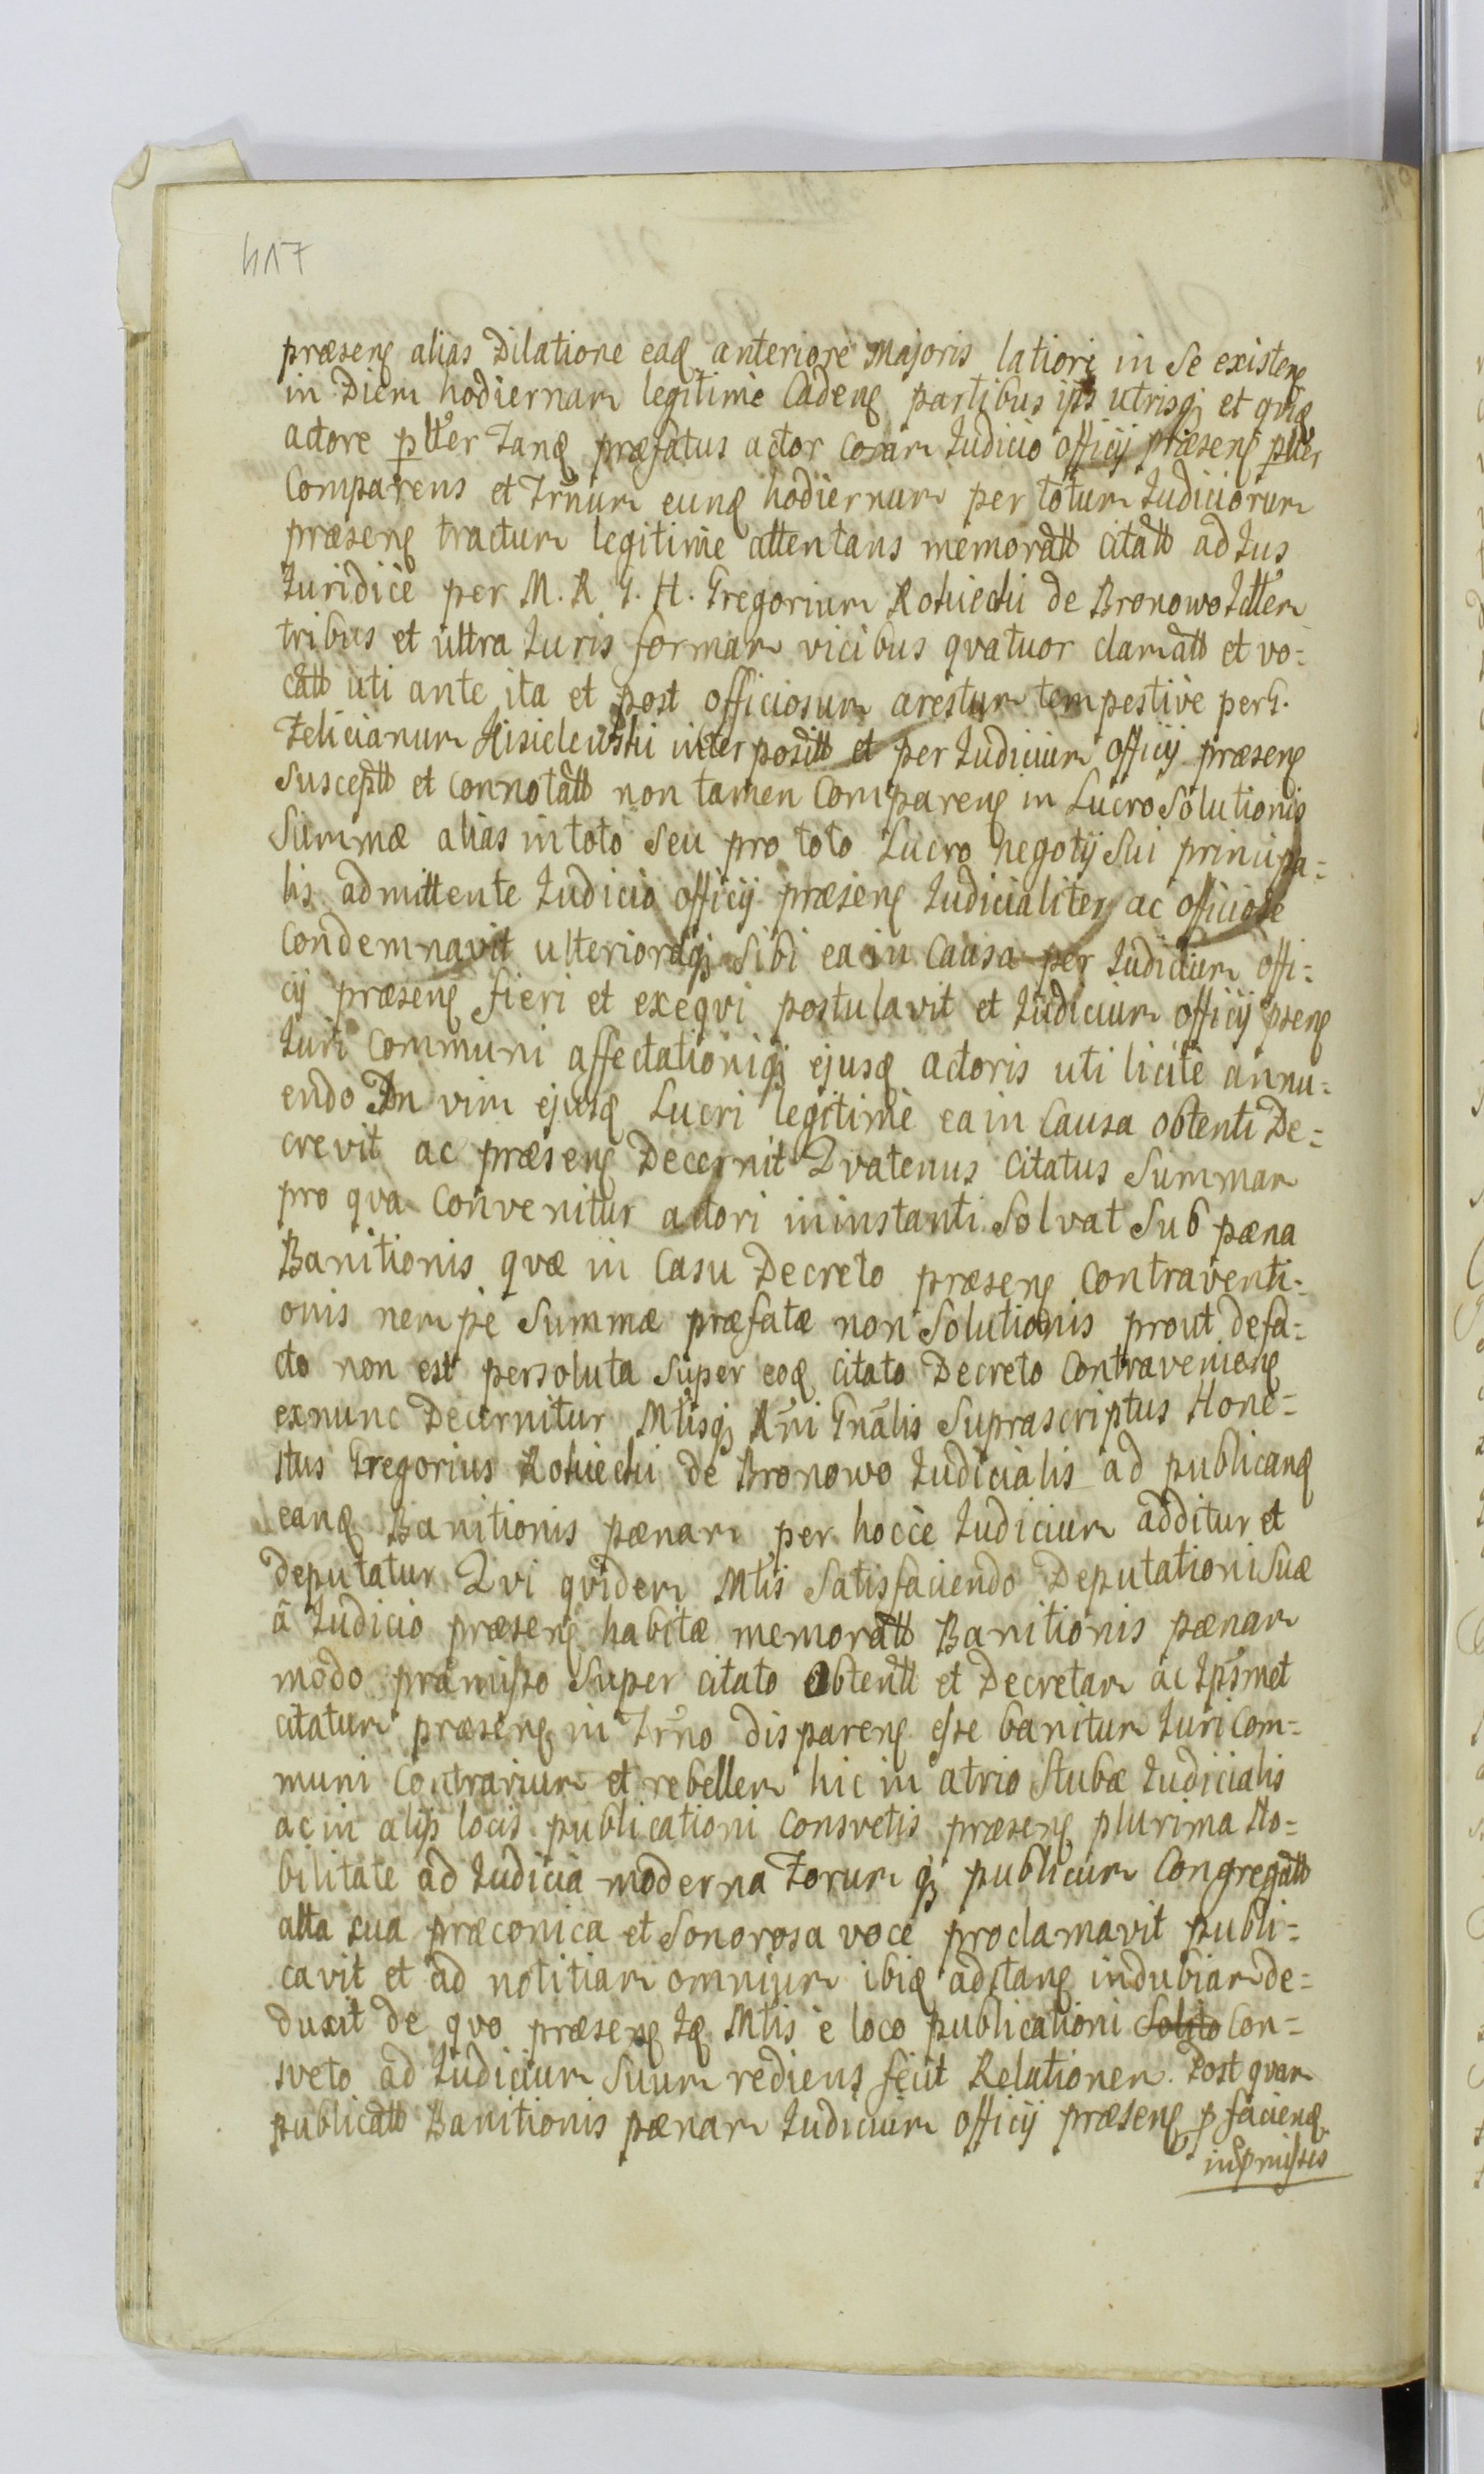 417
præsenꝭ alias Dilatione eaꝗ anteriore Majoris latiori in Se existenꝭ
in Diem hodiernam legitime Cadenꝭ partibus ip̃s utrisqꝫ et qviꝗ
actore pltẽr Tanꝗ præfatus actor coram Judicio officij præsenꝭ pltẽr
Comparens et Tr̃num eunꝗ hodiernum per totum Judiciorum
præsenꝭ tractum legitime attentans memoratt citatt ad Jus
Juridice per M. R. G. H. Gregorium Rokicki de Bronowo Jdltem
tribus et ultra Juris formam vicibus qvatuor clamatt et vo=
catt uti ante ita et post officiosum arestum tempestive per G.
Felicianum Kisielewski interpositt et per Judicium officij præsenꝭ
Susceptt et connotatt non tamen Comparenꝭ in Lucro Solutionis
Summæ alias in toto Seu pro toto Lucro negotij Sui principa=
lis admittente Judicio officij præsenꝭ Judicialiter ac officiose
Condemnavit ulterioraqꝫ Sibi ea in Causa per Judicium offi=
cij præsenꝭ fieri et exeqvi postulavit et Judicium officij psenꝭ
Juri Communi affectationiqꝫ ejusꝗ actoris uti licite annu=
endo In vim ejusꝗ Lucri legitime ea in Causa obtenti De=
crevit ac præsenꝭ Decernit Qvatenus Citatus Summam
pro qva Convenitur actori in instanti Solvat Sub pæna
Banitionis qvæ in Casu Decreto præsenꝭ Contraventi=
onis nempe Summæ præfatæ non Solutionis prout de fa=
cto non est persoluta Super eoꝗ citato Decreto Contravenienꝭ
exnunc Decernitur Mtisqꝫ R̃ni Gn̄alis Suprascriptus Hone=
stus Gregorius Rokicki de Bronowo Judicialis ad publicanꝗ
eanꝗ Banitionis pænam per hocce Judicium additur et
deputatur Qvi qvidem Mtis Satisfaciendo Deputationi Suæ
â Judicio præsenꝭ habitæ memoratt Banitionis pænam
modo præmisso Super citato obtentt et Decretam ac Ips̃met
citatum præsenꝭ in Tr̃no disparenꝭ esse banitum Juri Com=
muni Contrarium et rebellem hic in atrio Stubæ Judicialis
ac in alijs locis publicationi Consvetis præsenꝭ plurima No=
bilitate ad Judicia moderna Forumqꝫ publicum Congregatt
alta sua præconica et Sonorosa voce proclamavit publi=
cavit et ad notitiam omnium ibiꝗ adstanꝭ indubiam de=
duxit de qvo præsenꝭ Iꝗ Mtis e loco publicationi Solito Con=
sveto ad Judicium Suum rediens fecit Relationem. Post qvam
publicatt Banitionis pænam Judicium officij præsenꝭ p facienꝗ
in præmissis